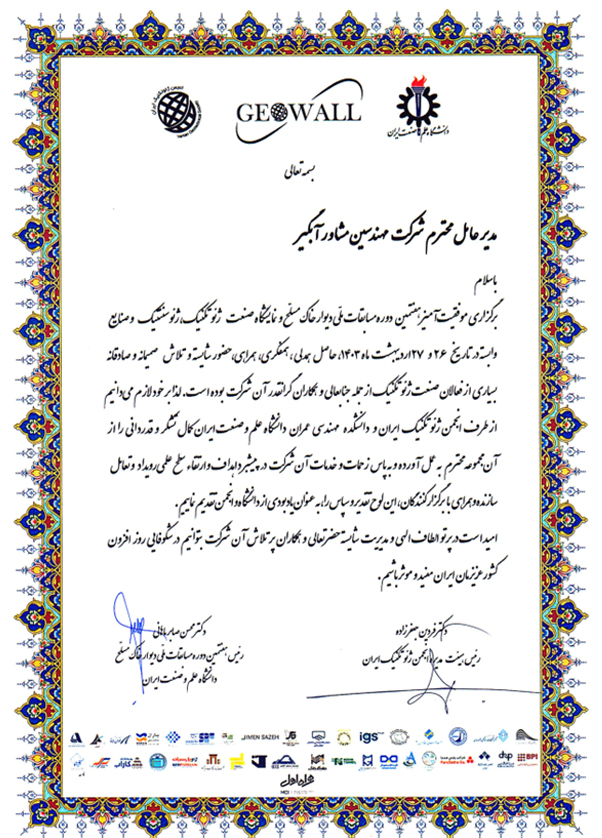 GEOWALL
دانشگاه علم و صنعت ایران
بسمه تعالی
مدیر عامل محترم شرکت مهندسین مشاور آبگیر
با سلام
برگزاری موفقیت آمیز هفتمین دوره مسابقات ملی دیوار خاک مسلح و نمایشگاه صنعت ژئوتکنیک، ژئوسنتتیک و صنایع
وابسته در تاریخ ۲۶ و ۲۷ اردیبهشت ماه ۱۴۰۳، حاصل همدلی، همفکری، همراهی، حضور شایسته و تلاش صمیمانه و صادقانه
بسیاری از فعالان صنعت ژئوتکنیک از جمله جنابعالی و همکاران گرانقدر آن شرکت بوده است. لذا بر خود لازم می دانیم
از طرف انجمن ژئوتکنیک ایران و دانشکده مهندسی عمران دانشگاه علم و صنعت ایران کمال تشکر و قدردانی را از
آن مجموعه محترم به عمل آورده و به پاس زحمات و خدمات آن شرکت در پیشبرد اهداف و ارتقاء سطح علمی رویداد و تعامل
سازنده و همراهی با برگزارکنندگان، این لوح تقدیر و سپاس را به عنوان یادبودی از دانشگاه و انجمن تقدیم نماییم.
امید است در پرتو الطاف الهی و مدیریت شایسته حضرتعالی و همکاران پرتلاش آن شرکت بتوانیم در شکوفایی روز افزون
کشور عزیزمان ایران مفید و موثر باشیم.
دکتر فردین جعفرزاده
رئیس هیئت مدیره انجمن ژئوتکنیک ایران
دکتر محسن صابر ماهانی
رئیس هفتمین دوره مسابقات ملی دیوار خاک مسلح
دانشگاه علم و صنعت ایران
JIMEN SAZEH
igs
BPI
همراه اول
MCI